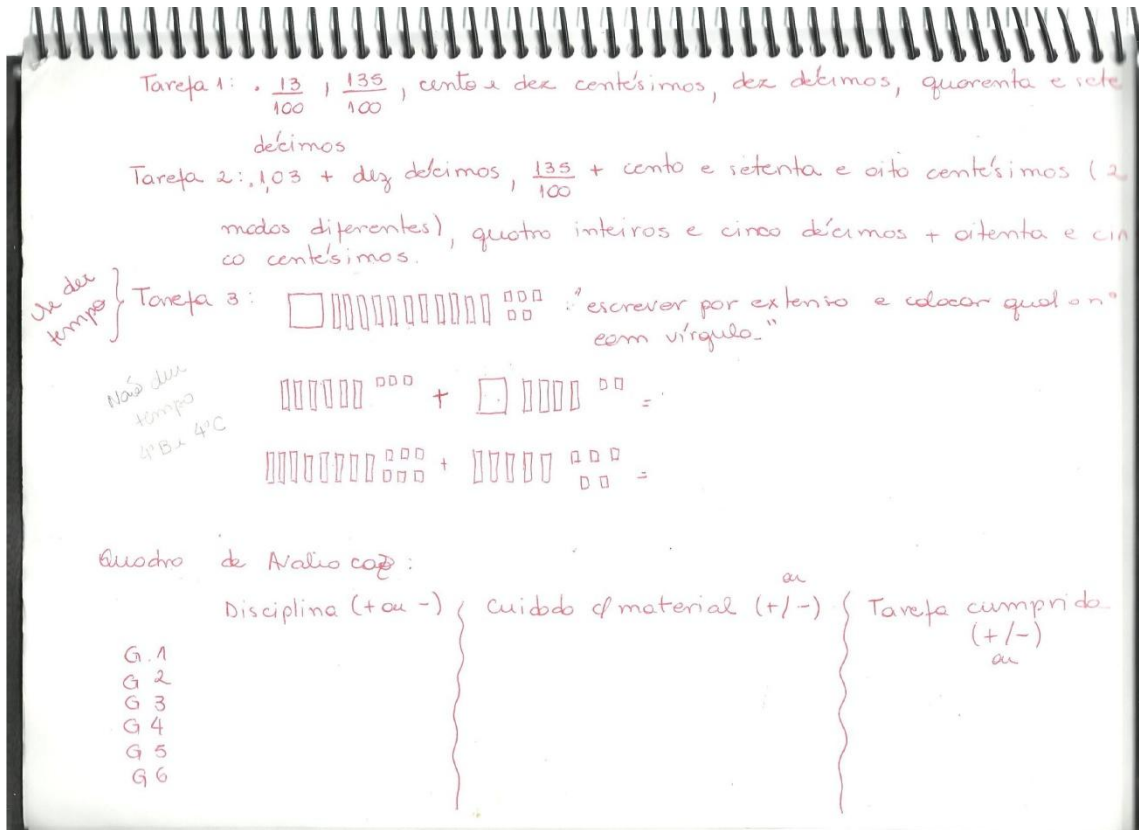 Tarefa 1: . 13/100 , 135/100 , cento e dez centésimos, dez décimos, quarenta e sete
décimos
Tarefa 2: . 1,03 + dez décimos, 135/100 + cento e setenta e oito centésimos (2
modos diferentes), quatro inteiros e cinco décimos + oitenta e cin
co centésimos.
Se der
tempo } Tarefa 3 : : "escrever por extenso e colocar qual o nº
com vírgula."
Não deu
tempo
4º B e 4º C
+ =
+ =
Quadro de Avaliação :
Disciplina (+ ou -) Cuidado c/ material (+/-) ou Tarefa cumprida
(+/-)
ou
G.1
G 2
G 3
G 4
G 5
G 6